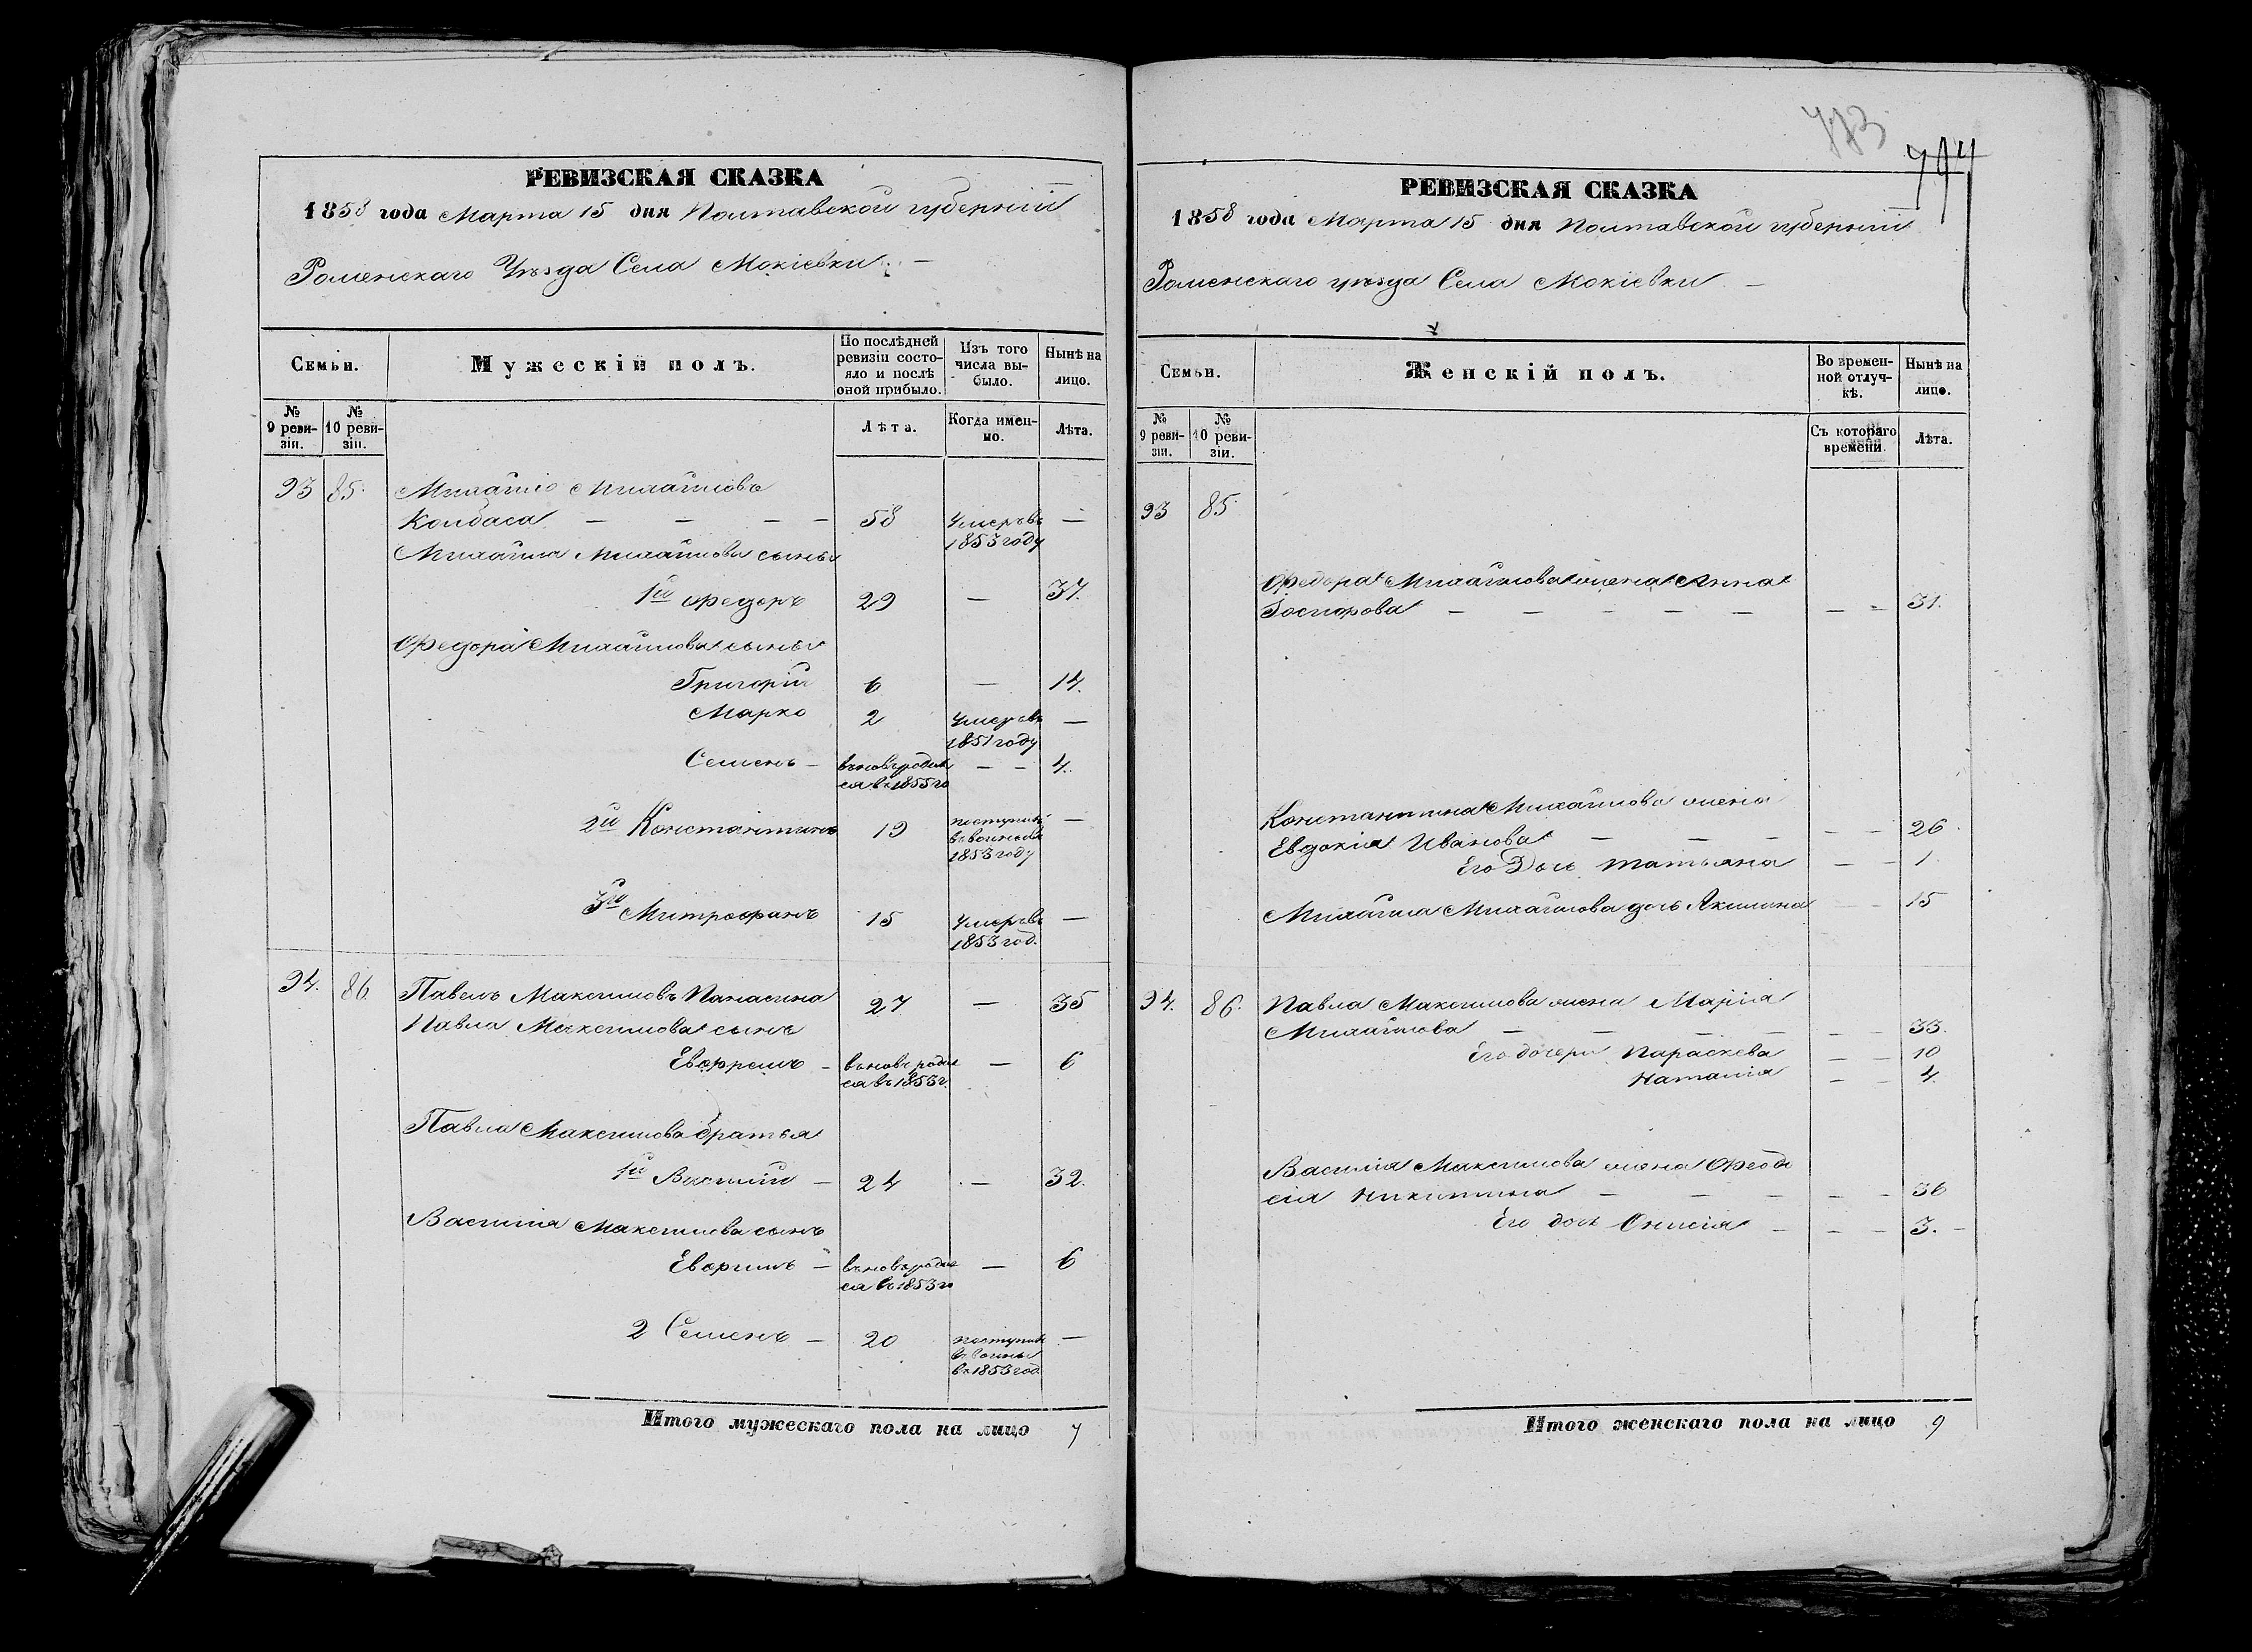 РЕВИЗСКАЯ СКАЗКА
1858 года Марта 15 дня Полтавской губерніи
Роменскаго Уѣзда Села Мокіевки. —
Семьи.
Мужескій полъ.
По послѣдней ревизіи состояло и послѣ оной прибыло.
Изъ того числа выбыло.
Нынѣ на лицо.
№ 9 ревизіи.
№ 10 ревизіи.
Лѣта.
Когда именно.
Лѣта.
93 85. Михайло Михайловъ
Колбаса — — — — 58 Умеръ въ —
1853 году
Михайла Михайлова сынъя
1й Федоръ 29 — 37.
Федора Михайлова сынъя
Григорій 6 — 14.
Марко 2 Умеръ въ —
1851 году
Семенъ — вновь родил — — 4.
ся въ 1855 го
2й Константинъ 19 поступилъ —
1853 году
3й Митрофанъ 15 Умеръ въ —
1853 год.
94. 86. Павелъ Максимовъ Панасина 27 — 35
Павла Максимова сынъ
Евфремъ — вновь родил — 6
ся въ 1853 г.
Павла Максимова братья
1й Василій — 24 — 32.
Василія Максимова сынъ
Евфимъ — вновь родил — 6
ся въ 1853 го
2 Семенъ — 20 поступил —
въ 1853 год
Итого мужескаго пола на лицо 7
773
774
РЕВИЗСКАЯ СКАЗКА
1858 года Марта 15 дня Полтавской губерніи
Роменскаго уѣзда Села Мокіевки. —
Семьи.
Женскій полъ.
Во временной отлучкѣ.
Нынѣ на лицо.
№ 9 ревизіи.
№ 10 ревизіи.
Съ котораго времени.
Лѣта.
93 85.
Федора Михайлова жена Анна
— — — — — — — 31.
Константина Михайлова жена
Евдокія Иванова — — — — — 26.
Его Дочь Татьяна — — 1.
Михайла Михайлова дочь Акилина — — 15
94. 86. Павла Максимова жена Марія
Михайлова — — — — — — 33.
Его дочери Параскева — — 10
Наталія — — 4.
Василія Максимова жена Феодо
сія Никитина — — — — — 36
Его дочь Онисія — — — 3. —
Итого женскаго пола на лицо 9